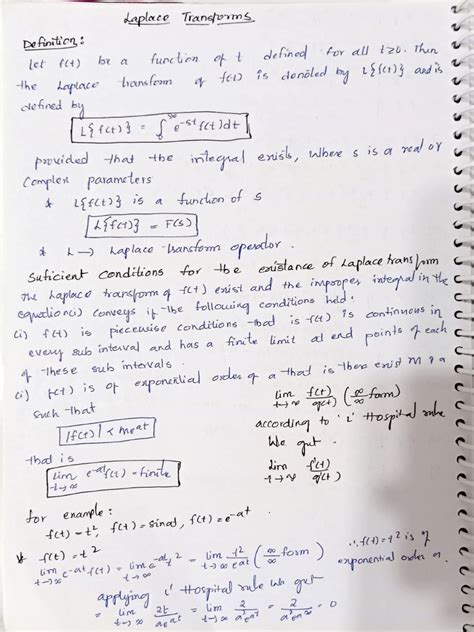 Laplace Transforms
Definition:
Let f(t) be a function of t defined for all t≥0. Then
the Laplace transform of f(t) is denoted by L{f(t)} and is
defined by
L{f(t)} = ∫₀^∞ e^-st f(t)dt
provided that the integral exists, where s is a real or
Complex parameters
* L{f(t)} is a function of s
L{f(t)} = F(s)
* L → Laplace transform operator.
Suficient Conditions for the existance of Laplace transform
The Laplace transform of f(t) exist and the improper integral in the
equation(1) conveys if the following conditions held:
(i) f(t) is piecewise conditions that is f(t) is continuous in
every sub interval and has a finite limit at end points of each
of these sub intervals.
(ii) f(t) is of exponential order of a that is there exist M & a
such that
|f(t)| < Me^at
that is
lim t→∞ e^-at f(t) = finite
lim t→∞ f(t)/g(t) (∞/∞ form)
according to 'L' Hospital rule
We get.
Lim t→∞ f'(t)/g'(t)
for example:
f(t) = t², f(t) = sinat, f(t) = e^-at
* f(t) = t²
lim t→∞ e^-at f(t) = lim t→∞ e^-at t² = lim t→∞ t²/e^at (∞/∞ form)
∴ f(t) = t² is of
exponential order
applying L' Hospital rule we get
= lim t→∞ 2t/ae^at = lim t→∞ 2/a²e^at = 2/a²e^∞ = 0